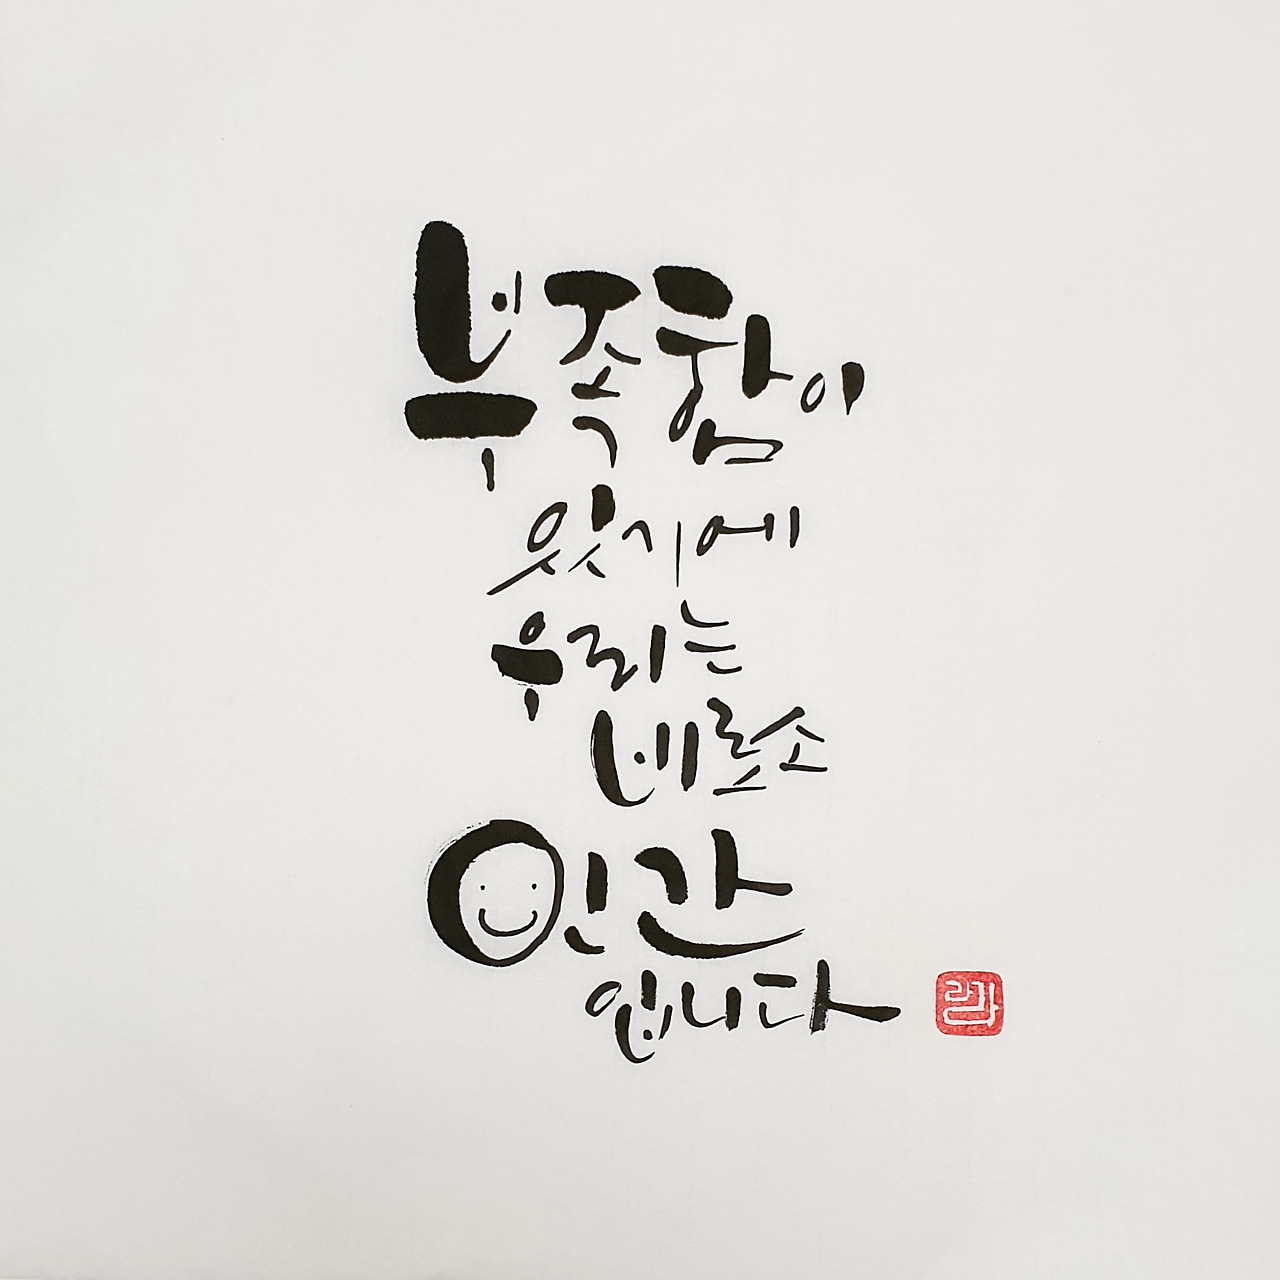 부족함이
있기에
우리는
비로소
인간
입니다